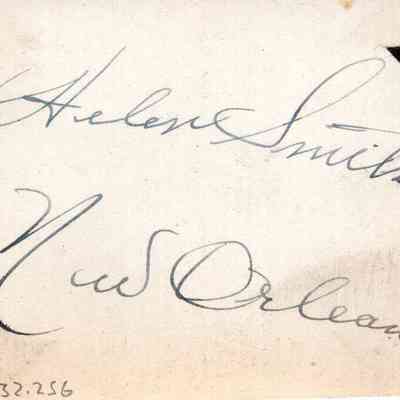 Helen Smith
New Orleans
32.256